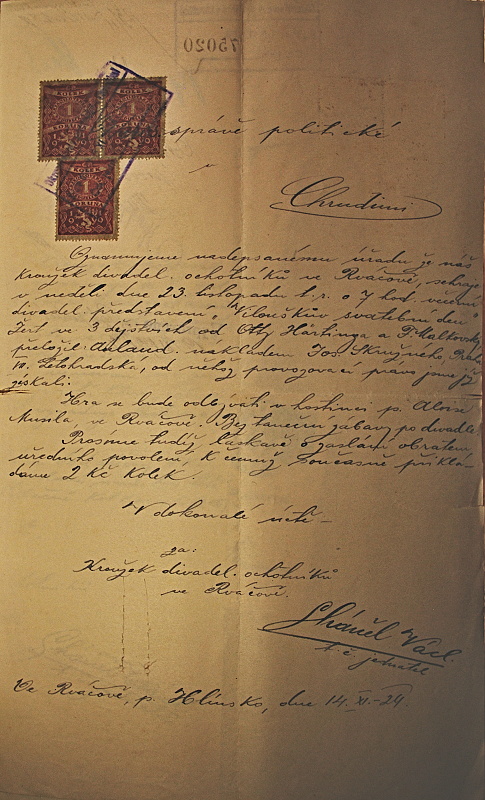 75020
KOLEK
1
KORUNA
KOLEK
1
KORUNA
KOLEK
1
KORUNA
správě politické
v
Chrudimi
Oznamujeme nadepsanému úřadu že náš
kroužek divadel. ochotníků ve Rváčově, sehraje
v neděli dne 23. listopadu t.r. o 7 hod. večerní
divadel. představení „Vilouškův svatební den"
Žert ve 3 dějstvích od Otty Härtinga a F. Malkovsky
přeložil: nákladem Jos. Praha
VII. Letohradská, od něhož provozovací právo jsme již
získali.
Hra se bude odbývati v hostinci p. Aloise
Musila ve Rváčově. Bez taneční zábavy po divadle.
Prosíme tudíž laskavě o zaslání obratem
úředního povolení, k čemuž současně přiklá-
dáme 2 Kč kolek.
V dokonalé úctě
za:
Kroužek divadel. ochotníků
ve Rváčově.
Václ.
t.č. jednatel
Ve Rváčově, p. Hlinsko, dne 14. XI.-24.